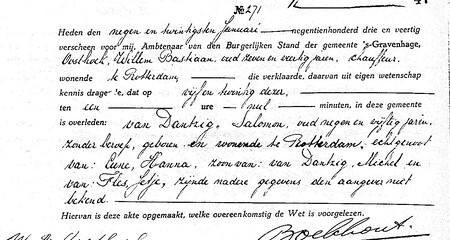 № 271
Heden den negen en twintigsten Januari negentienhonderd drie en veertig
verscheen voor mij, Ambtenaar van den Burgerlijken Stand der gemeente 's-Gravenhage,
Oosthoek, Willem Bastiaan, oud zeven en veertig jaren, chauffeur,
wonende te Rotterdam, die verklaarde, daarvan uit eigen wetenschap
kennis drage'e, dat op vijf en twintig dezer,
ten een ure nul minuten, in deze gemeente
is overleden: van Dantzig, Salomon, oud negen en vijftig jaren,
zonder beroep, geboren en wonende te Rotterdam, echtgenoot
van: Cune, Hanna, zoon van: van Dantzig, Michel en
van: Fles, Jetje, zijnde nadere gegevens den aangever niet
bekend.
Hiervan is deze akte opgemaakt, welke overeenkomstig de Wet is voorgelezen.
Boekhout.